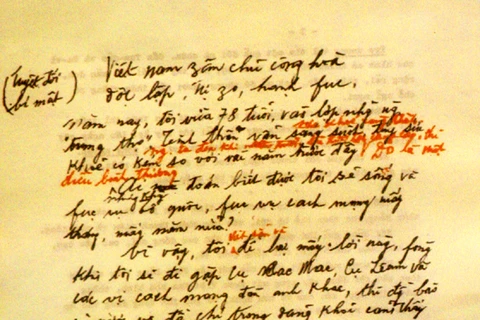 (tuyệt đối
bí mật)
Việt nam zân chủ cộng hoà
độc lập, tự zo, hạnh fúc,
Năm nay, tôi vừa 78 tuổi, vào lớp những ng
"trung thọ". Tinh thần vẫn sáng suốt, thân thể
Khoẻ có kém so với vài năm trước đây
Đó là một
điều bình thường
Ai mà đoán biết được tôi sẽ sống và
fục vụ tổ quốc, fục vụ cách mạng mấy
tháng, mấy năm nữa?
Vì vậy, tôi để lại mấy lời này, fòng
khi tôi sẽ đi gặp Cụ Các Mác, Cụ Lênin và
các vị cách mạng đàn anh khác, thì đồng bào
cả nước và đồng chí trong đảng khỏi cảm thấy